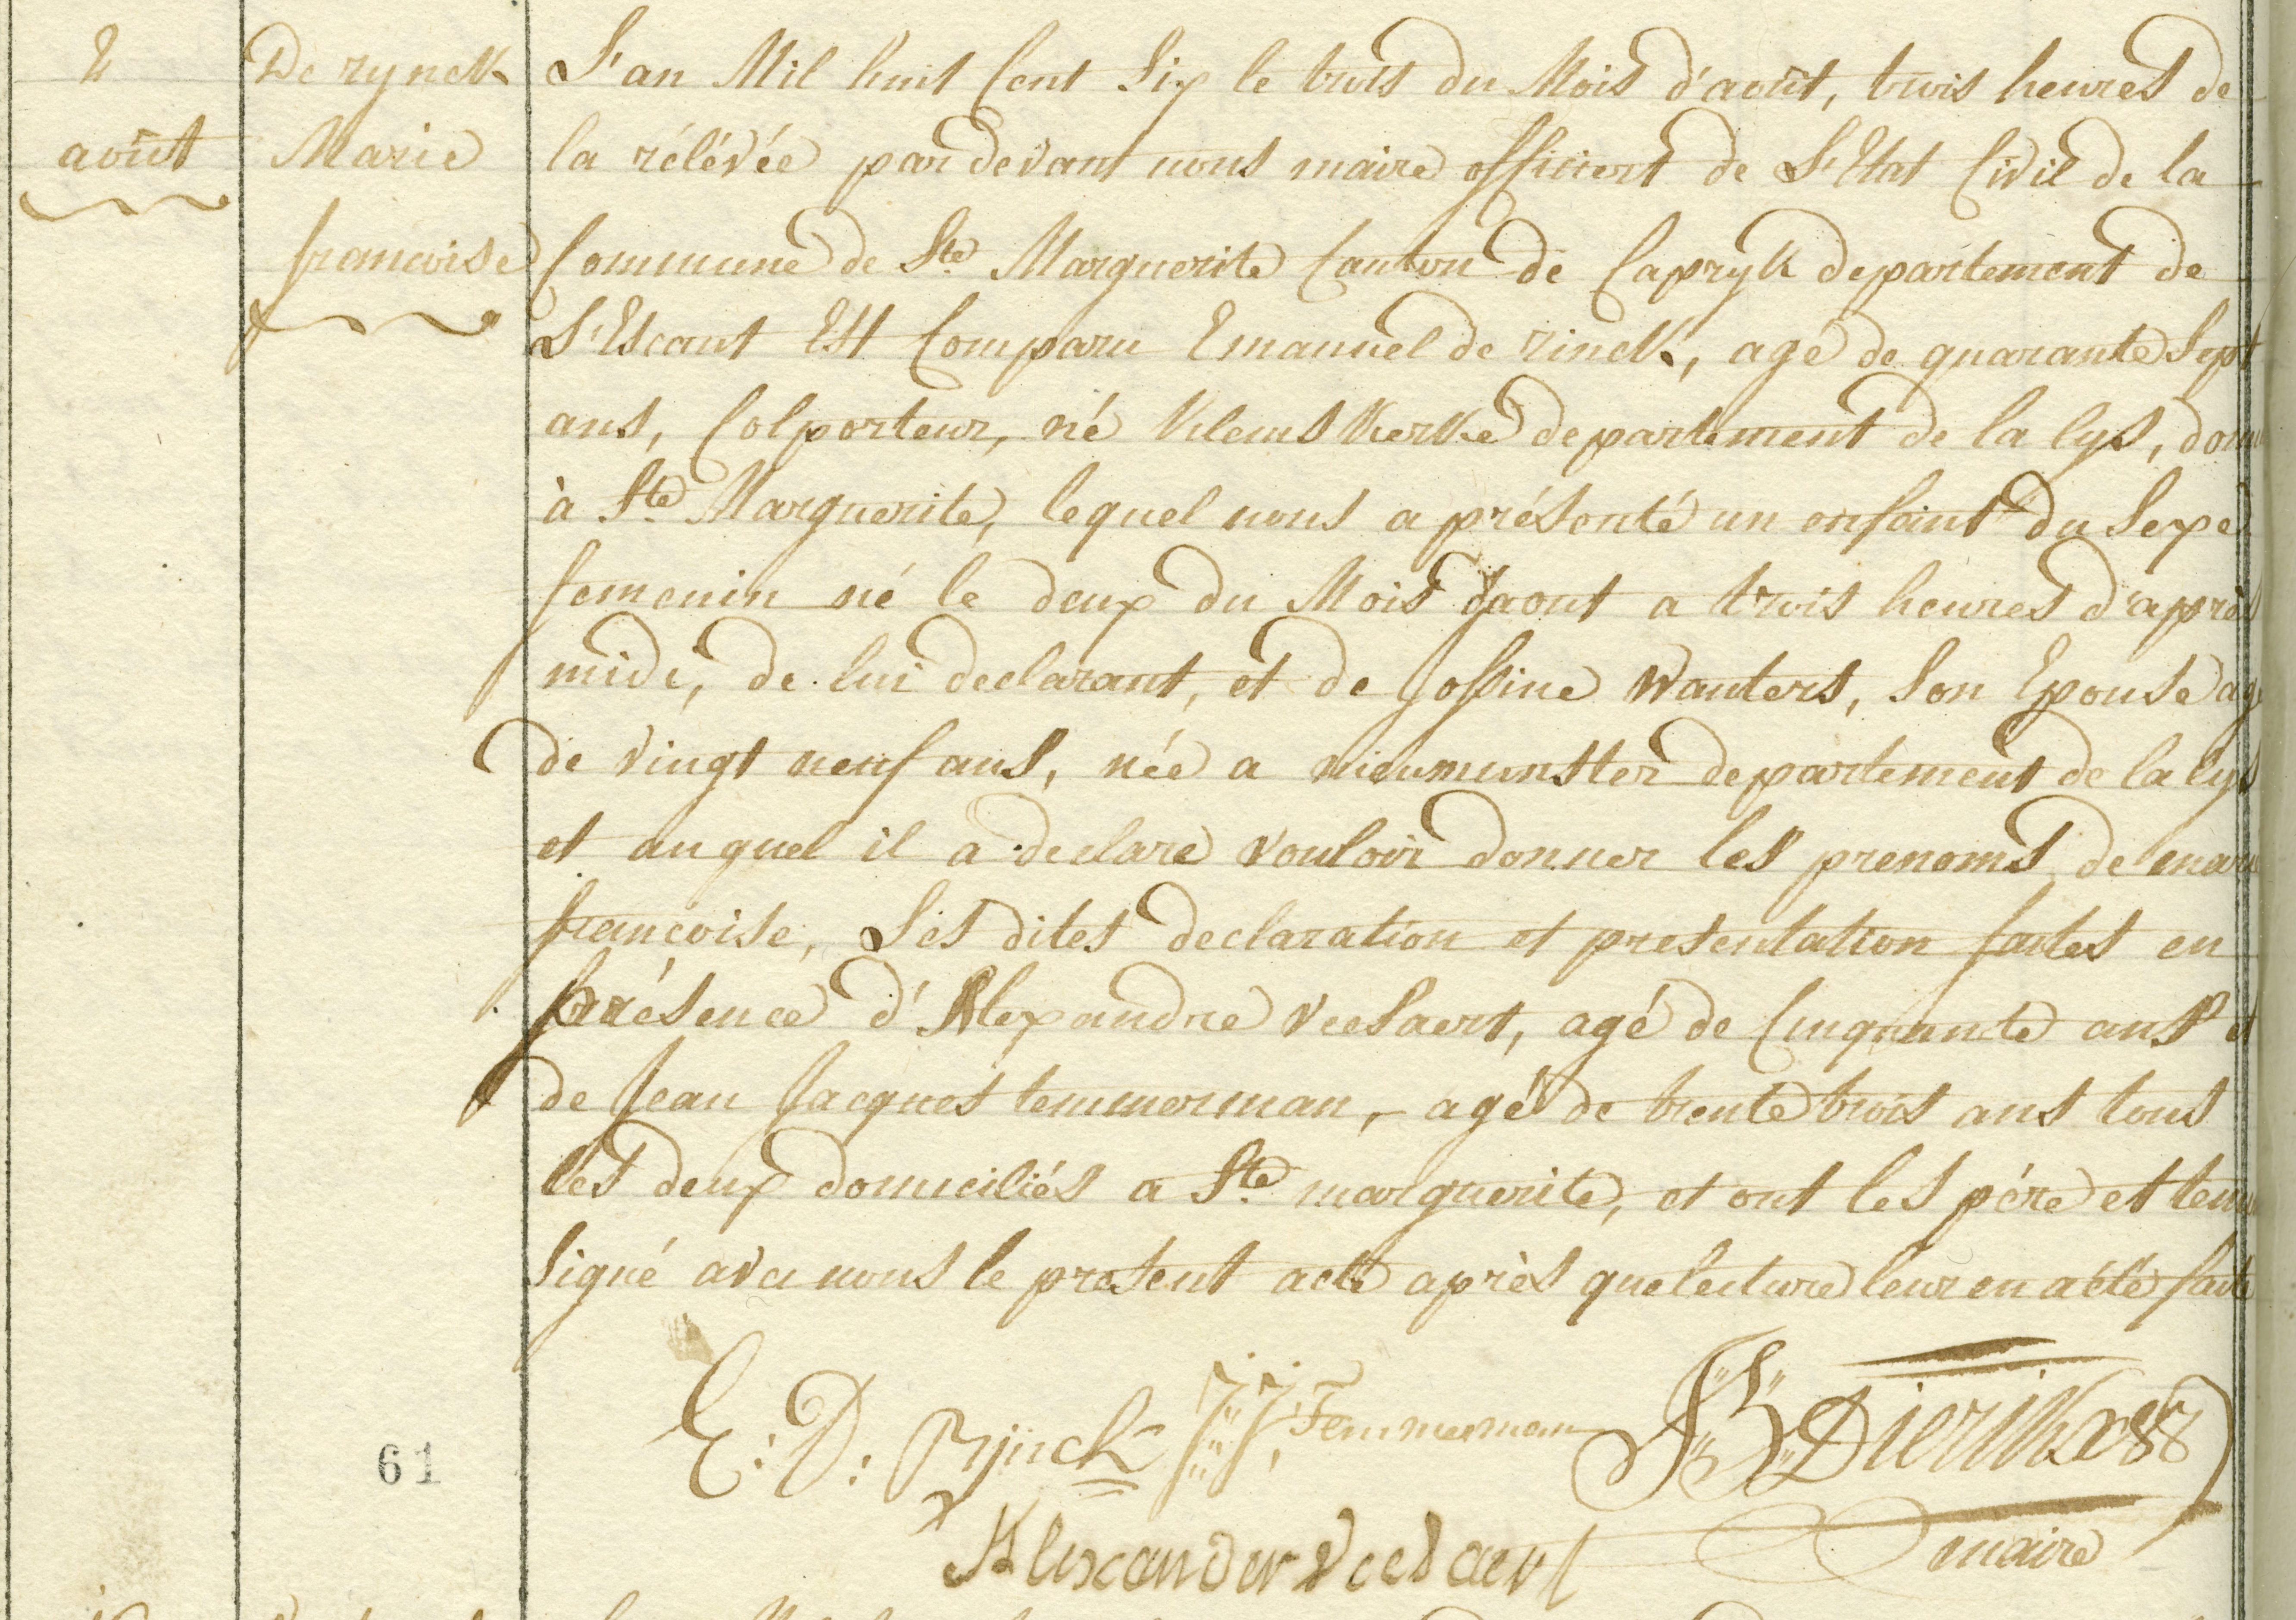 2
août
De rynck
Marie
francoise
L'an Mil huit Cent Six le trois du Mois d'août, trois heures de
la rélévée par devant nous maire officiert de L'Etat Civil de la
Commune de Ste Marguerite Canton de Capryk departement de
L'Escaut Est Comparu Emanuel de rinck, agé de quarante Sept
ans, Colporteur, né Klemskerke departement de la lys, dom
à Ste Marguerite, lequel nous a présenté un enfant du Sexe
femenin né le deux du Mois d'aout a trois heures d'après
midi, de lui declarant, et de Jossine Wauters, Son Epouse ag
de vingt neuf ans, née a nieumunster departement de la lys
et auquel il a declaré vouloir donner les prenoms de mari
francoise, Les dites declaration et presentation faites en
présence d'Alexandre veesaert, agé de Cinquante ans et
de Jean Jacques temmerman, agé de trente trois ans tous
les deux domiciliés a Ste marguerite, et ont les pére et tem
Signé avec nous le present acte après que lecture leur en a été faite
E: D: Rÿnck J: J: Temmerman Dierikx
Alexander Veesaert maire
61